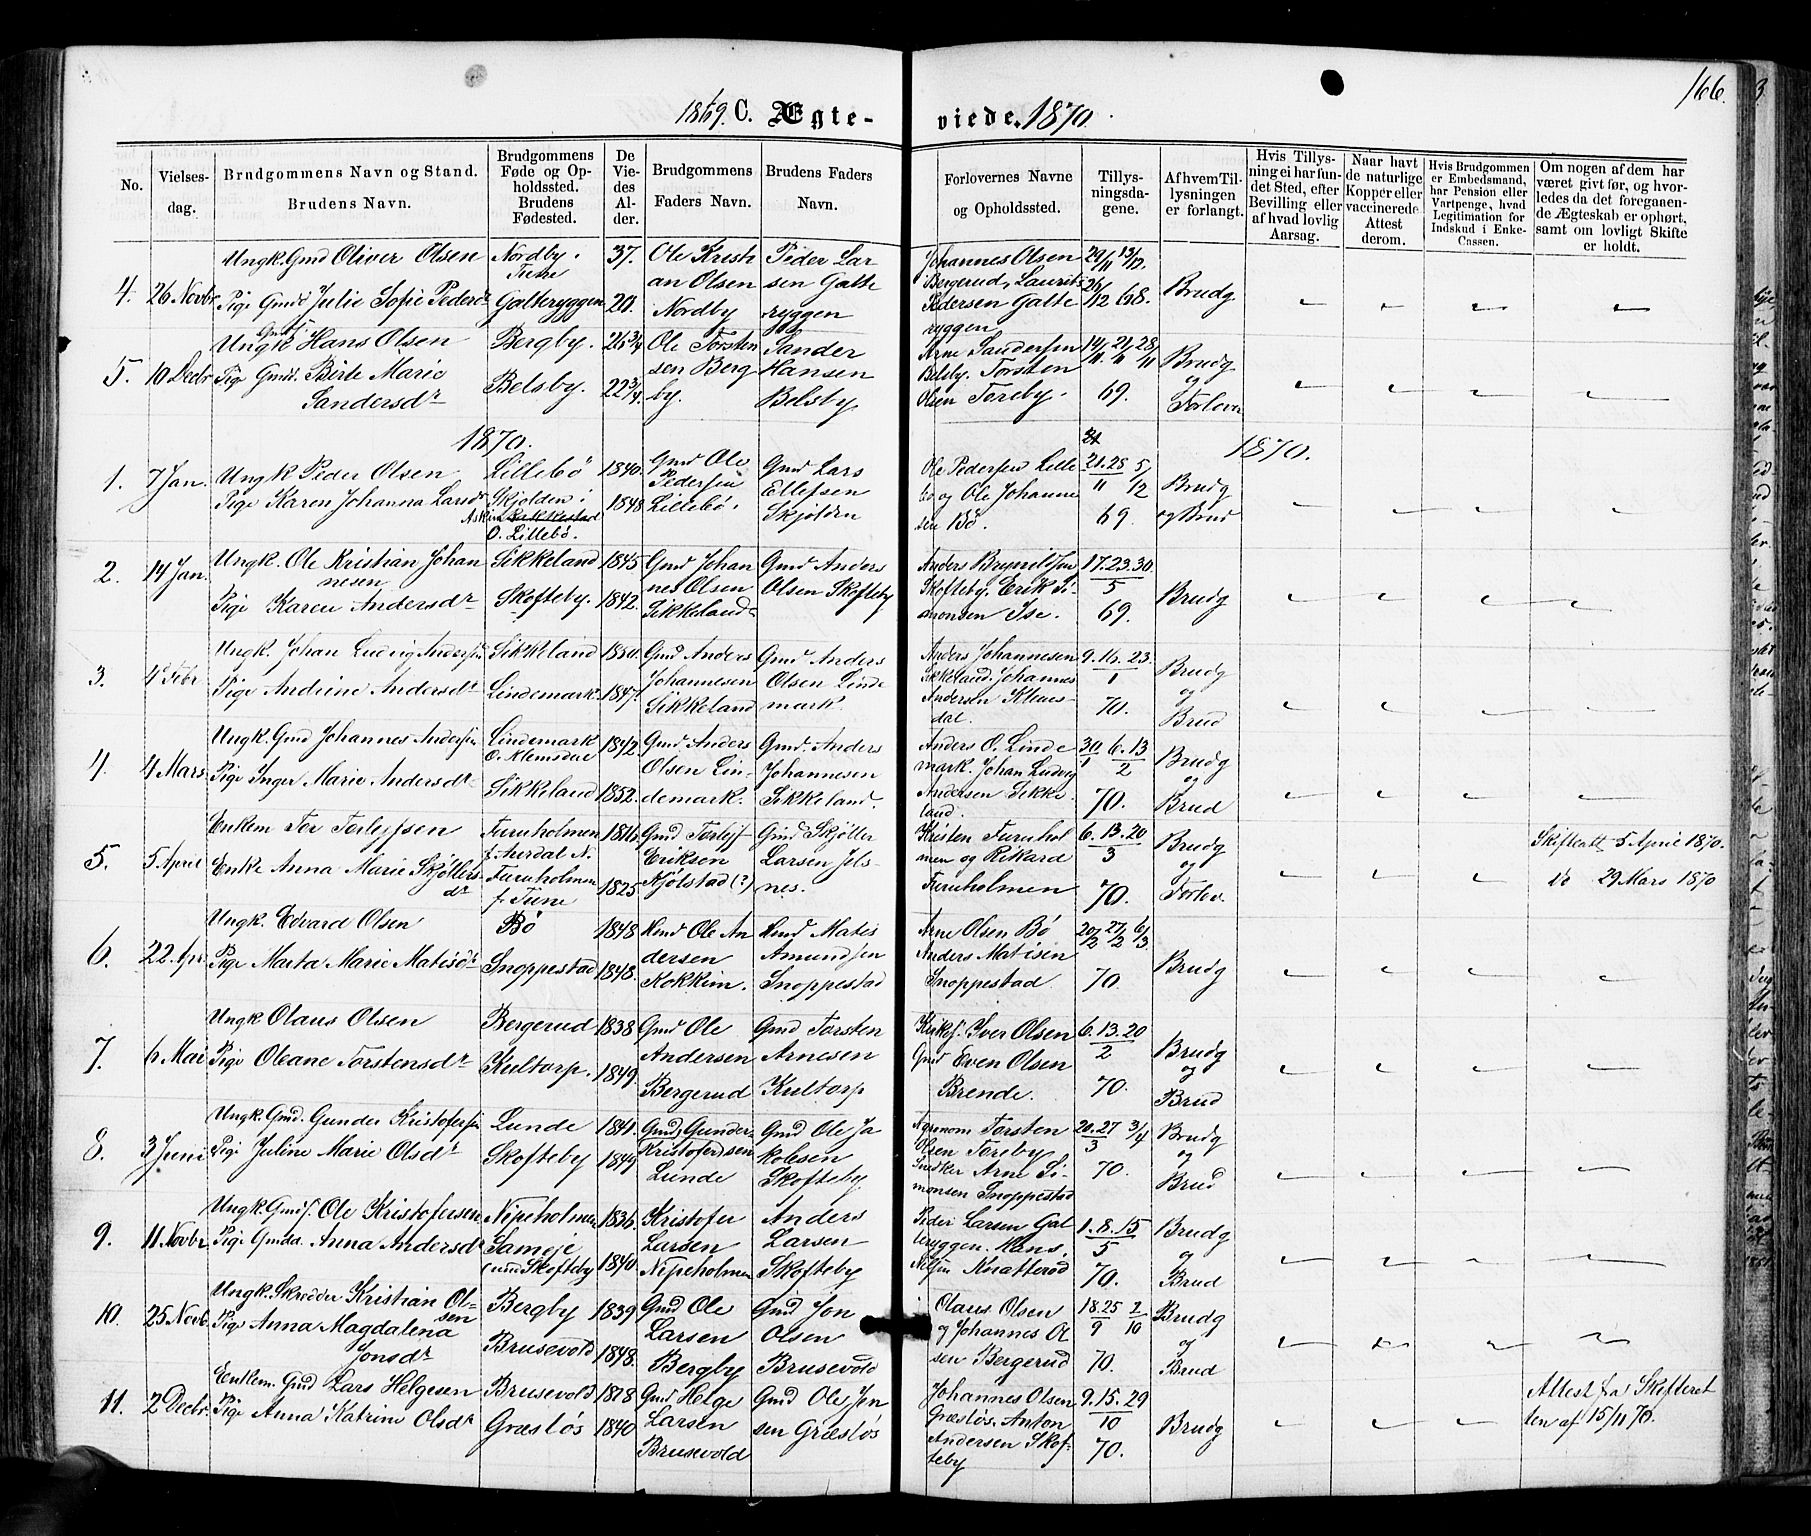 1869. C. Ægte-
viede. 1870.
166.
No.
Vielses-
dag.
Brudgommens Navn og Stand.
Brudens Navn.
Brudgommens
Føde og Op-
holdssted.
Brudens
Fødested.
De
Vie-
des
Al-
der.
Brudgommens
Faders Navn.
Brudens Faders
Navn.
Forlovernes Navne
og Opholdssted.
Tillys-
ningsda-
gene.
Af hvem Til-
lysningen
er forlangt.
Hvis Tillys-
ning ei har fun-
det Sted, efter
Bevilling eller
af hvad lovlig
Aarsag.
Naar havt
de naturlige
Kopper eller
vaccinerede
Attest
derom.
Hvis Brudgommen
er Embedsmand,
har Pension eller
Vartpenge, hvad
Legitimation for
Indskud i Enke-
Cassen.
Om nogen af dem har
været givt før, og hvor-
ledes da det foregaaen-
de Ægteskab er ophørt,
samt om lovligt Skifte
er holdt.
4. 26 Novbr
Ungk. Gmd Oliver Olsen
Pige Gmdd Julie Sofie Pedersdr
Nordby.
Tune
Galteryggen
37.
20.
Ole Kristi
an Olsen
Nordby
Peder Lar
sen Galte
ryggen
Johannes Olsen
Bergerud, Laurits
Pedersen Galte
ryggen
29/11 13/12
26/12 68.
Brudg
5. 10 Decbr
Ungk Gmds Hans Olsen
Pige Gmdd. Birte Marie
Sandersdr
Bergby.
Belsby.
26 3/4
22 3/4
Ole Torsten
sen Berg
by.
Sander
Hansen
Belsby
Arne Sandersen
Belsby. Torsten
Olsen Toreby.
14/11 21/11 28/11
69.
Brudg
og
Forlover
1870.
1870.
1. 7 Jan.
Ungk Peder Olsen
Pige Karen Johanna Larsdr
Lillebö
Skjolden i
Askim Rakkestad
O. Lillebö.
1840.
1848
Gmd Ole
Pedersen
Lillebö.
Gmd Lars
Ellefsen
Skjolden
Ole Pedersen Lille
bö og Ole Johanne
sen Bö.
21. 28/11 5/12
69.
Brudg
og Brud
2. 14 Jan.
Ungk. Ole Kristian Johan
nesen
Pige Karen Andersdr
Sikkeland
Skofteby.
1845
1842.
Gmd Johan
nes Olsen
Sikkeland
Gmd Anders
Olsen Skofteby
Anders Bryneldsen
Skofteby. Erik Si-
monsen Ise.
17. 23. 30.
5
69.
Brudg
3. 4 Febr
Ungk. Johan Ludvig Andersen
Pige Andrine Andersdr
Sikkeland
Lindemark.
1850.
1847.
Gmd Anders
Johannesen
Sikkeland
Gmd Anders
Olsen Linde
mark.
Anders Johannesen
Sikkeland. Johannes
Andersen Klems-
dal.
9. 16. 23.
1
70.
Brudg
og
Brud
4. 4 Mars
Ungk. Gmd Johannes Andersen
Pige Inger Marie Andersdr
Lindemark
O. Klemsdal
Sikkeland
1842.
1852.
Gmd. Anders
Olsen Lin-
demark.
Gmd. Anders
Johannesen
Sikkeland.
Anders O. Linde
mark. Johan Ludvig
Andersen Sikke
land.
30/1 6. 13
2
70.
Brudg
og
Brud
5. 5 April
Enkem Tor Torleifsen
Enke Anna Marie Skjöllers
dr
Furuholmen
f. Aurdal N.
Furuholmen
f. Tune
1816
1825
Gmd Torleif
Eriksen
Kjölstad (?)
Gmd Skjöller
Larsen Jels-
nes.
Kristen Furuhol
men og Rikard
Furuholmen
6. 13. 20
3
70.
Brudg
og
Forlov.
Skifteatt 5 April 1870.
do 29 Mars 1870
6. 22 Apr.
Ungk. Edvard Olsen
Pige Marta Marie Matisdr
Bö
Snoppestad
1848
1848.
Hmd Ole An
dersen
Kokkim.
Hmd Matis
Amundsen
Snoppestad
Arne Olsen Bö
Anders Matisen
Snoppestad.
20/2 27/2 6/3
70.
Brudg
7. 6 Mai
Ungk. Olaus Olsen
Pige Oleane Torstensdr
Bergerud
Kultorp.
1838
1849.
Gmd Ole
Andersen
Bergerud
Gmd Torsten
Arnesen
Kultorp
Kirkes. Iver Olsen
Gmd Even Olsen
Brende.
6. 13. 20
2
70.
Brudg
og
Brud
8. 3 Juni
Ungk. Gmd. Gunder Kristofersen
Pige Juline Marie Olsdr
Lunde
Skofteby
1841.
1849
Gmd. Gunder
Kristofersen
Lunde
Gmd Ole Ja
kobsen
Skofteby
Agronom Torsten
Olsen Toreby
Snedker Arne Si-
monsen Snoppestad
20. 27/3 3/4
70.
Brudg
og
Brud
9. 11 Novbr
Ungk. Gmds. Ole Kristofersen
Pige Gmdd. Anna Andersdr
Nipeholmen
Sameje
(und Skofteby
1836
1840
Kristofer
Larsen
Nipeholmen
Anders
Larsen
Skofteby
Peder Larsen Gal
teryggen. Hans
Nilsen Knatteröd
1. 8. 15
5
70.
Brudg
og
Brud
10. 25 Novb.
Ungk. Skrædder Kristian Ol-
sen
Pige Anna Magdalena
Jonsdr
Bergby
Brusevold
1839
1848.
Gmd Ole
Larsen
Bergby
Gmd Jon
Olsen
Brusevold
Olaus Olsen
og Johannes Ol
sen Bergerud
18. 25/9 2/10
70.
Brudg
og
Brud
11. 2 Decbr.
Enkem. Gmd Lars Helgesen
Pige Anna Katrine Olsdr
Brusevold
Græslös
1828
1840
Gmd Helge
Larsen
Brusevold
Gmd Ole Jon
sen Græslös
Johannes Olsen
Græslös. Anton
Andersen Skof-
teby
9. 15. 29
10
70.
Brudg
Attest fra Skifteret
ten af 15/11 70.